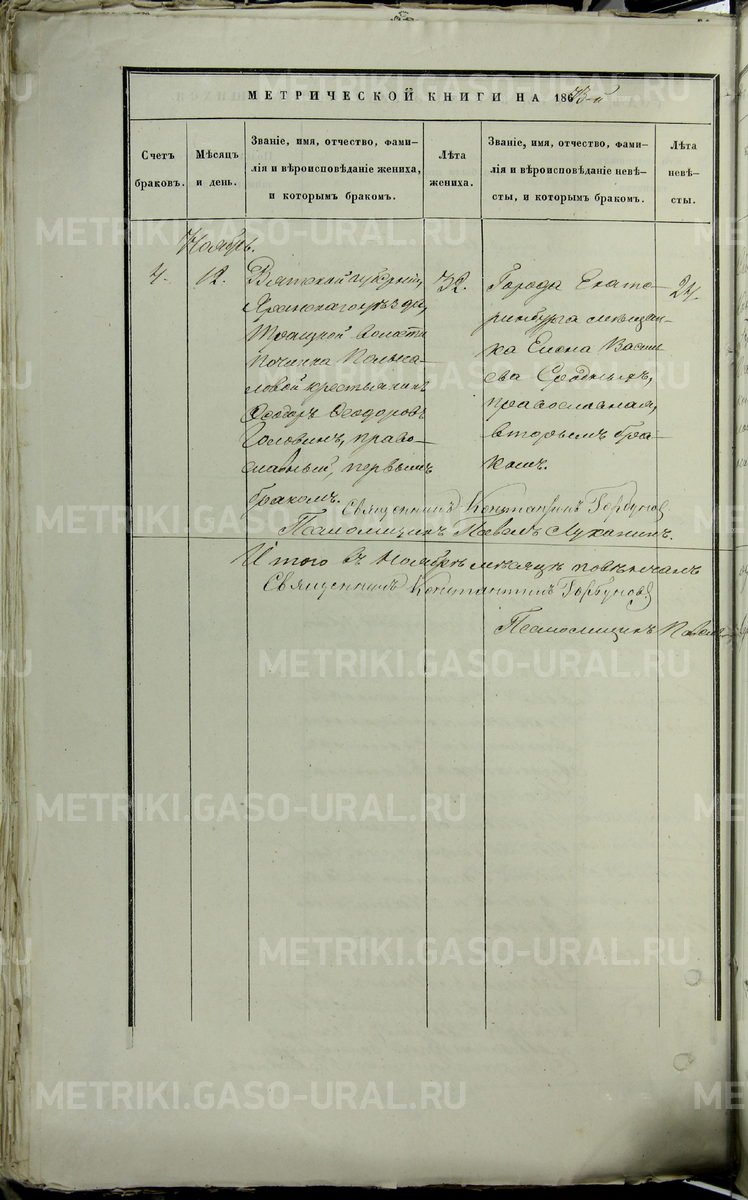 МЕТРИЧЕСКОЙ КНИГИ НА 1873-й
Счетъ браковъ.
Мѣсяцъ и день.
Званіе, имя, отчество, фами-
лія и вѣроисповѣданіе жениха,
и которымъ бракомъ.
Лѣта жениха.
Званіе, имя, отчество, фами-
лія и вѣроисповѣданіе невѣ-
сты, и которымъ бракомъ.
Лѣта невѣ-
сты.
Ноябрь.
4.
12.
Вятской губерніи,
Яранскаго уѣзда,
Троицкой волости
починка
крестьянинъ
Ѳеодоръ Ѳеодоровъ
Головинъ, право-
славный, первымъ
бракомъ.
32.
Города Екате-
ринбурга мѣщан-
ка Елена Василь
ева Сродныхъ,
православная,
вторымъ бра-
комъ.
24.
Священникъ Константинъ Горбуновъ
Псаломщикъ Павелъ Луканинъ.
Итого въ Ноябрѣ мѣсяцѣ повѣнчанъ
Священникъ Константинъ Горбуновъ
Псаломщикъ Павелъ
METRIKI.GASO-URAL.RU